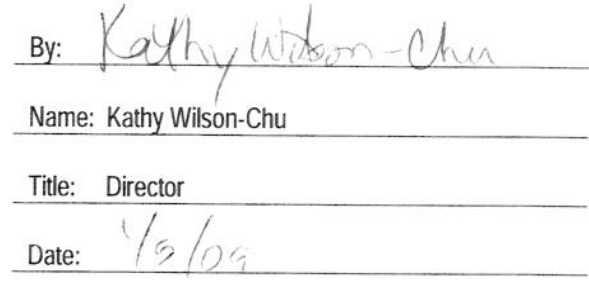 By: Kathy Wilson-Chu
Name: Kathy Wilson-Chu
Title: Director
Date: